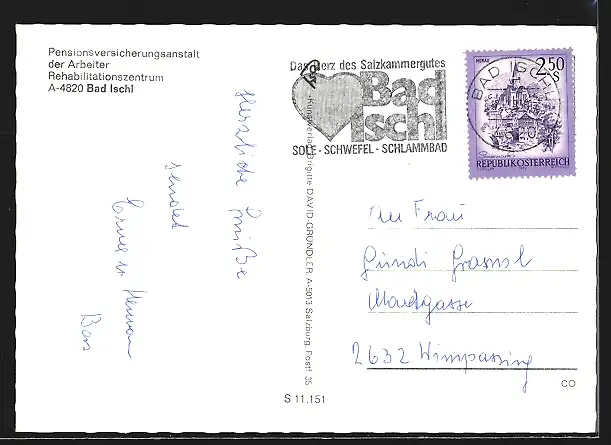 Pensionsversicherungsanstalt
der Arbeiter
Rehabilitationszentrum
A-4820 Bad Ischl
Das Herz des Salzkammergutes
Bad
Ischl
SOLE - SCHWEFEL - SCHLAMMBAD
MURAU
2.50
S
BAD ISCHL
REPUBLIK ÖSTERREICH
Herzliche Grüße
sendet
Kunstverlag Brigitte DAVID-GRÜNDLER, A-5013 Salzburg, Postf. 35
An Frau
Gundi
Marktgasse
2632 Wimpassing
CO
S 11.151